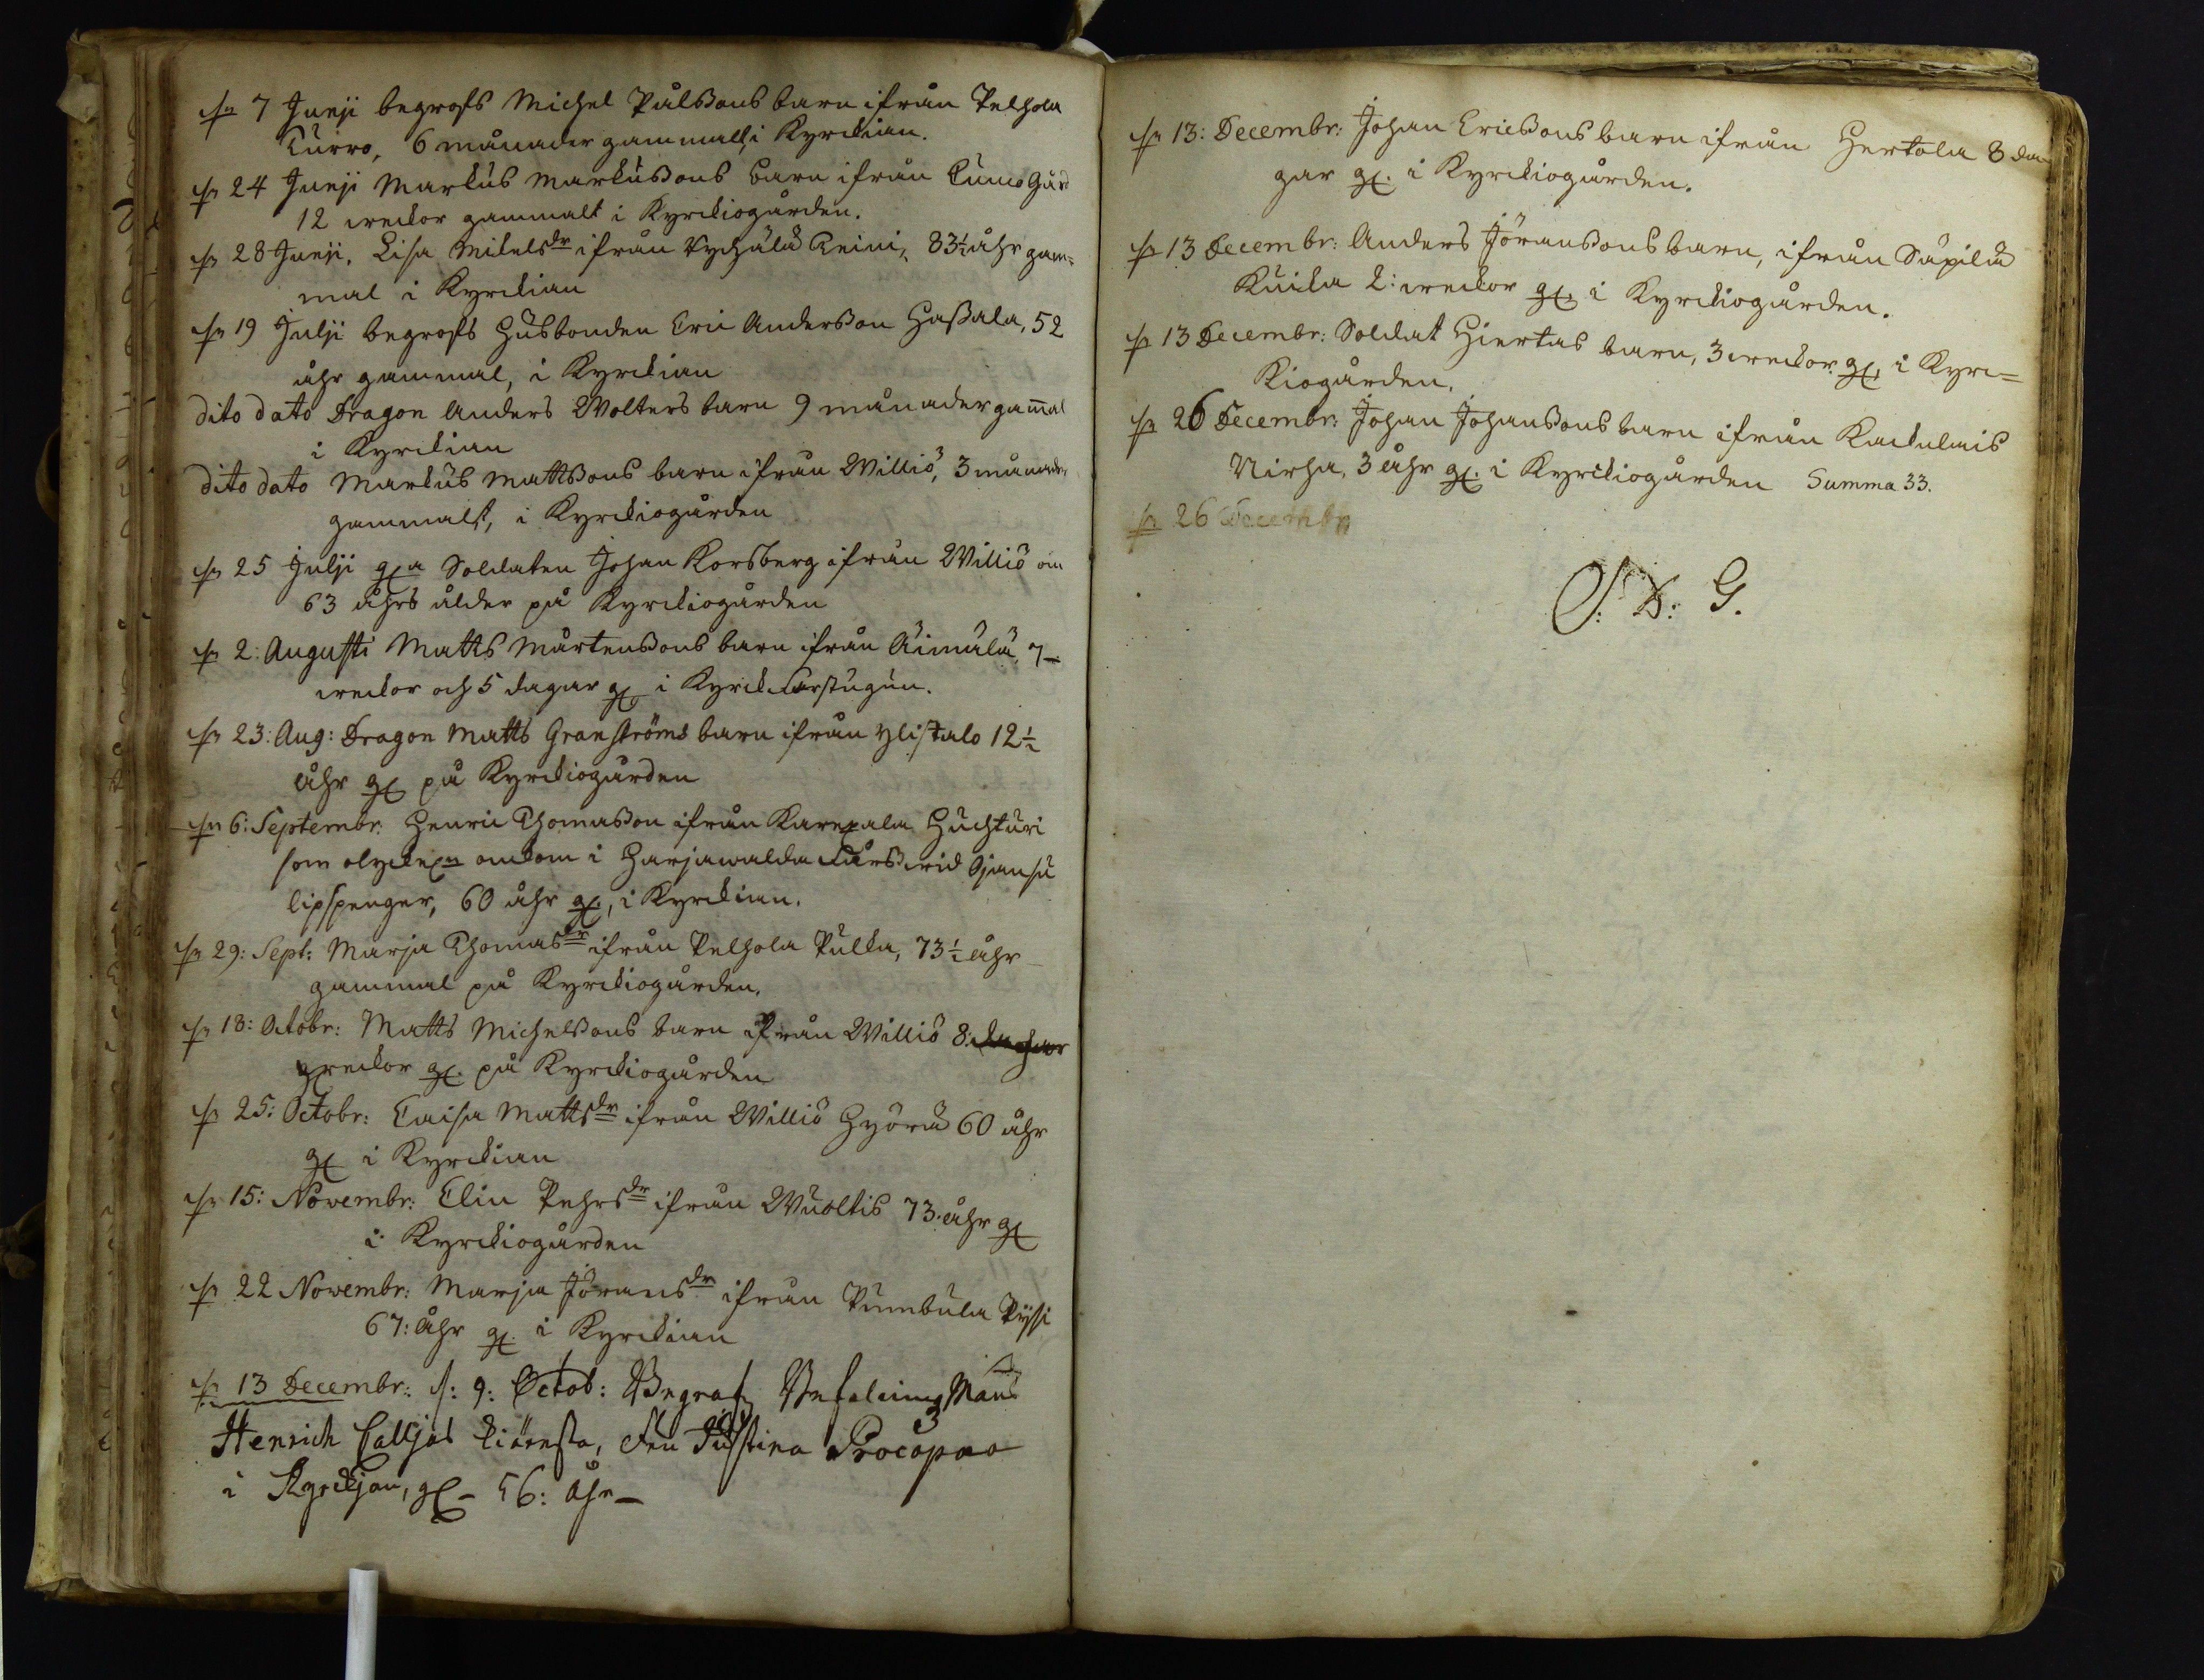 d. 7 Junji begrofs Michel Pålssons barn ifrån Pelhola
Kurro, 6 månader gammalt, i Kyrckian.
d. 24 Junji Markus Markussons barn ifrån Cumogård
12 weckor gammalt i Kyrckiogården.
d. 28 Junji, Lisa Mikelsdr ifrån Kyhälä Reini, 83½ åhr gam=
mal i Kyrckian
d. 19 Julji begrofs Husbonden Eric Andersson Hassala, 52
åhr gammal, i Kyrckian
dito dato Dragon Anders Wolters barn 9 månader gam̄al
i Kyrckian
dito dato Markus Mattssons barn ifrån Williö, 3 månader
gammalt, i Kyrckiogården
d. 25 Julji gla Soldaten Johan Korsberg ifrån Williö om
63 åhrs ålder på Kyrckiogården
d. 2: Augusti Matts Mårtenssons barn ifrån Äimälä, 7
weckor och 5 dagar gl i Kyrckforstugun.
d. 23: Aug: Dragon Matts Granströms barn ifrån Ylistalo 12½
åhr gl på Kyrckiogården
d. 6: Septembr: Henric Thomasson ifrån Karhala Huchturi
som omkom i Harjawalda fårss wid Ojansu
60 åhr gl, i Kyrckian.
d. 29: Sept: Marja Thomasdr ifrån Pelhola Pulka, 73½ åhr
gammal på Kyrckiogården.
d. 18: Octobr: Matts Michelssons barn ifrån Williö 8: dagar
weckor gl. på Kyrckiogården
d. 25: Octobr: Caisa Mattsdr ifrån Williö Hyörä 60 åhr
gl i Kyrckian
d. 15: Novembr: Elin Pehrsdr ifrån Wuoltis 73. åhr gl
i Kyrckiogården
d. 22 Novembr: Marja Jöransdr ifrån Pumbula Pyssi
67: åhr gl. i Kyrckian
d. 13 Decembr: d: 9: Octob: Begrafz Befalnings Mans
Henrich Calljas kiäresta, fru Justina Procopao
i Kyrckjan, gl – 56: åhr –
d. 13: Decembr: Johan Ericssons barn ifrån Hertola 8 da
gar gl. i Kyrckiogården.
d. 13 Decembr: Anders Jöranssons barn, ifrån Säpilä
Kuicka 2: weckor gl. i Kyrckiogården.
d. 13 Decembr: Soldat Hiertas barn, 3 weckor gl, i Kyrc=
kiogården.
d. 26 Decembr: Johan Johanssons barn ifrån Kackulais
Nirha, 3 åhr gl. i Kyrckiogården Summa 33.
d. 26 Decembr
S: D: G.